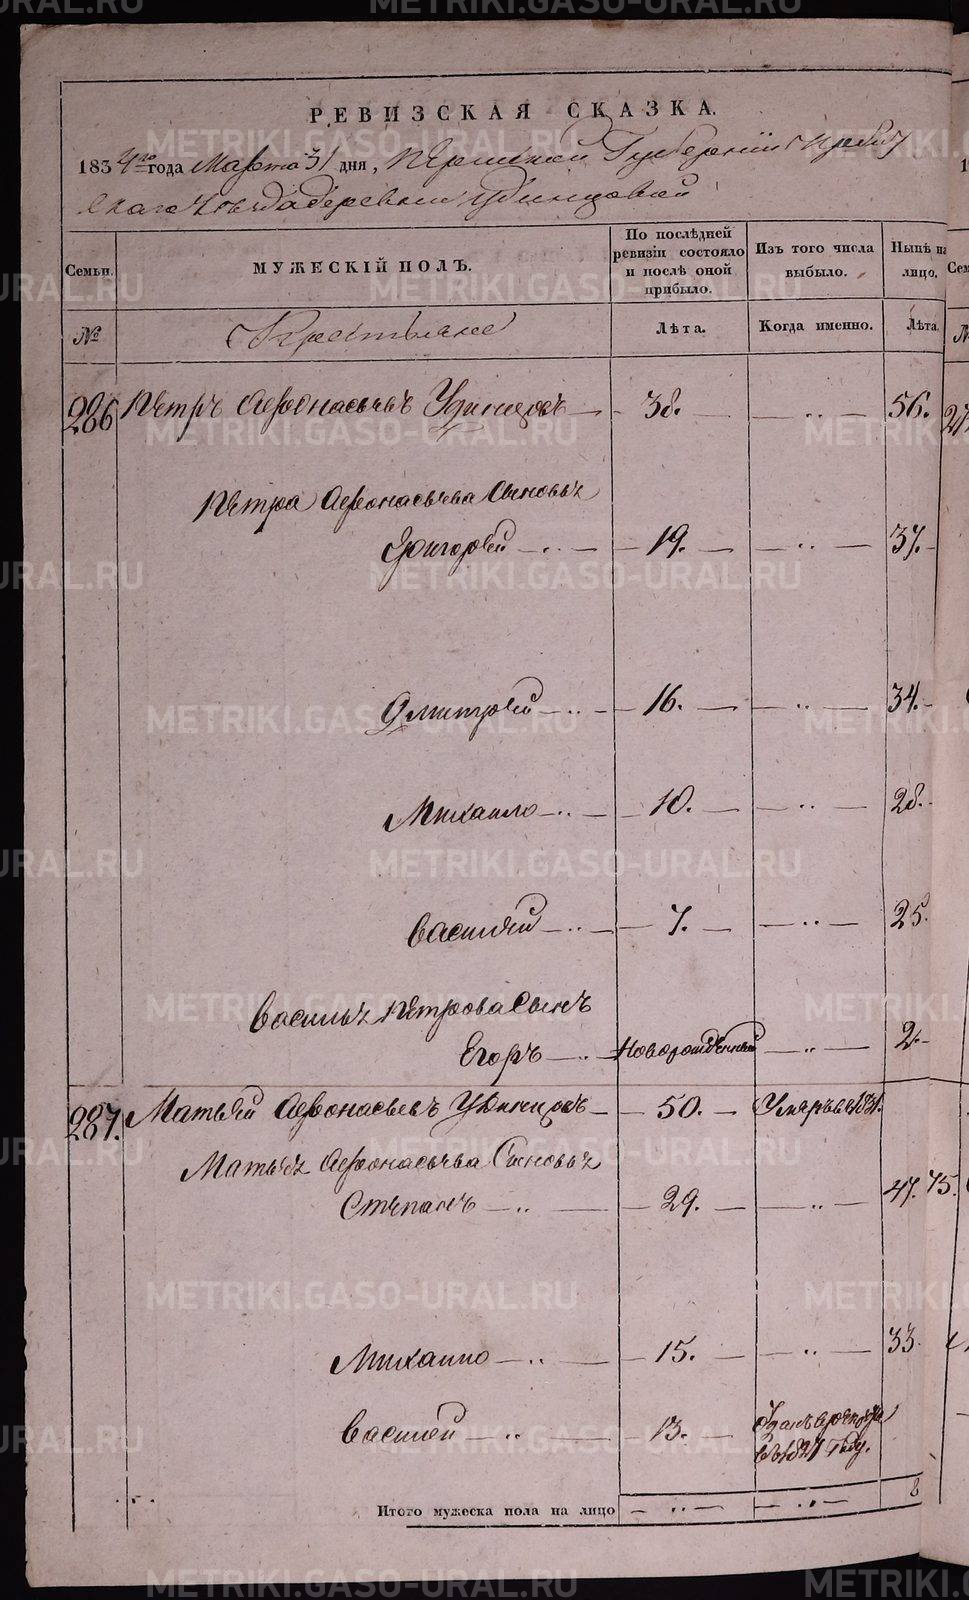 РЕВИЗСКАЯ СКАЗКА.
1834го года Марта 31 дня, Пермской Губернии Ирбит
скаго уезда деревни Удинцовой
Семьи.
МУЖЕСКІЙ ПОЛЪ.
По послѣдней ревизіи состояло и послѣ оной прибыло.
Изъ того числа выбыло.
Нынѣ на лицо.
№
Крестьяне
Лѣта.
Когда именно.
Лѣта.
286 Петръ Афонасьевъ Удинцовъ — 38. — „ — 56.
Петра Афонасьева Сыновья
Григорей — „ — 19. — „ — 37.
Дмитрей — „ — 16. — „ — 34.
Михаило — „ — 10. — „ — 28.
Василей — „ — 7. — „ — 25.
Василья Петрова Сынъ
Егоръ — „ — Новорожденный — „ — 2.
287. Матвей Афонасьевъ Удинцовъ — 50. — Умръ въ 1831.
Матвея Афонасьева Сыновья
Степанъ — „ — 29. — „ — 47. 45.
Михаило — „ — 15. — „ — 33.
Василей — „ — 13. — Зданъ в рекруты
въ 1827 Году.
Итого мужеска пола на лицо — „ — — „ — 8
METRIKI.GASO-URAL.RU